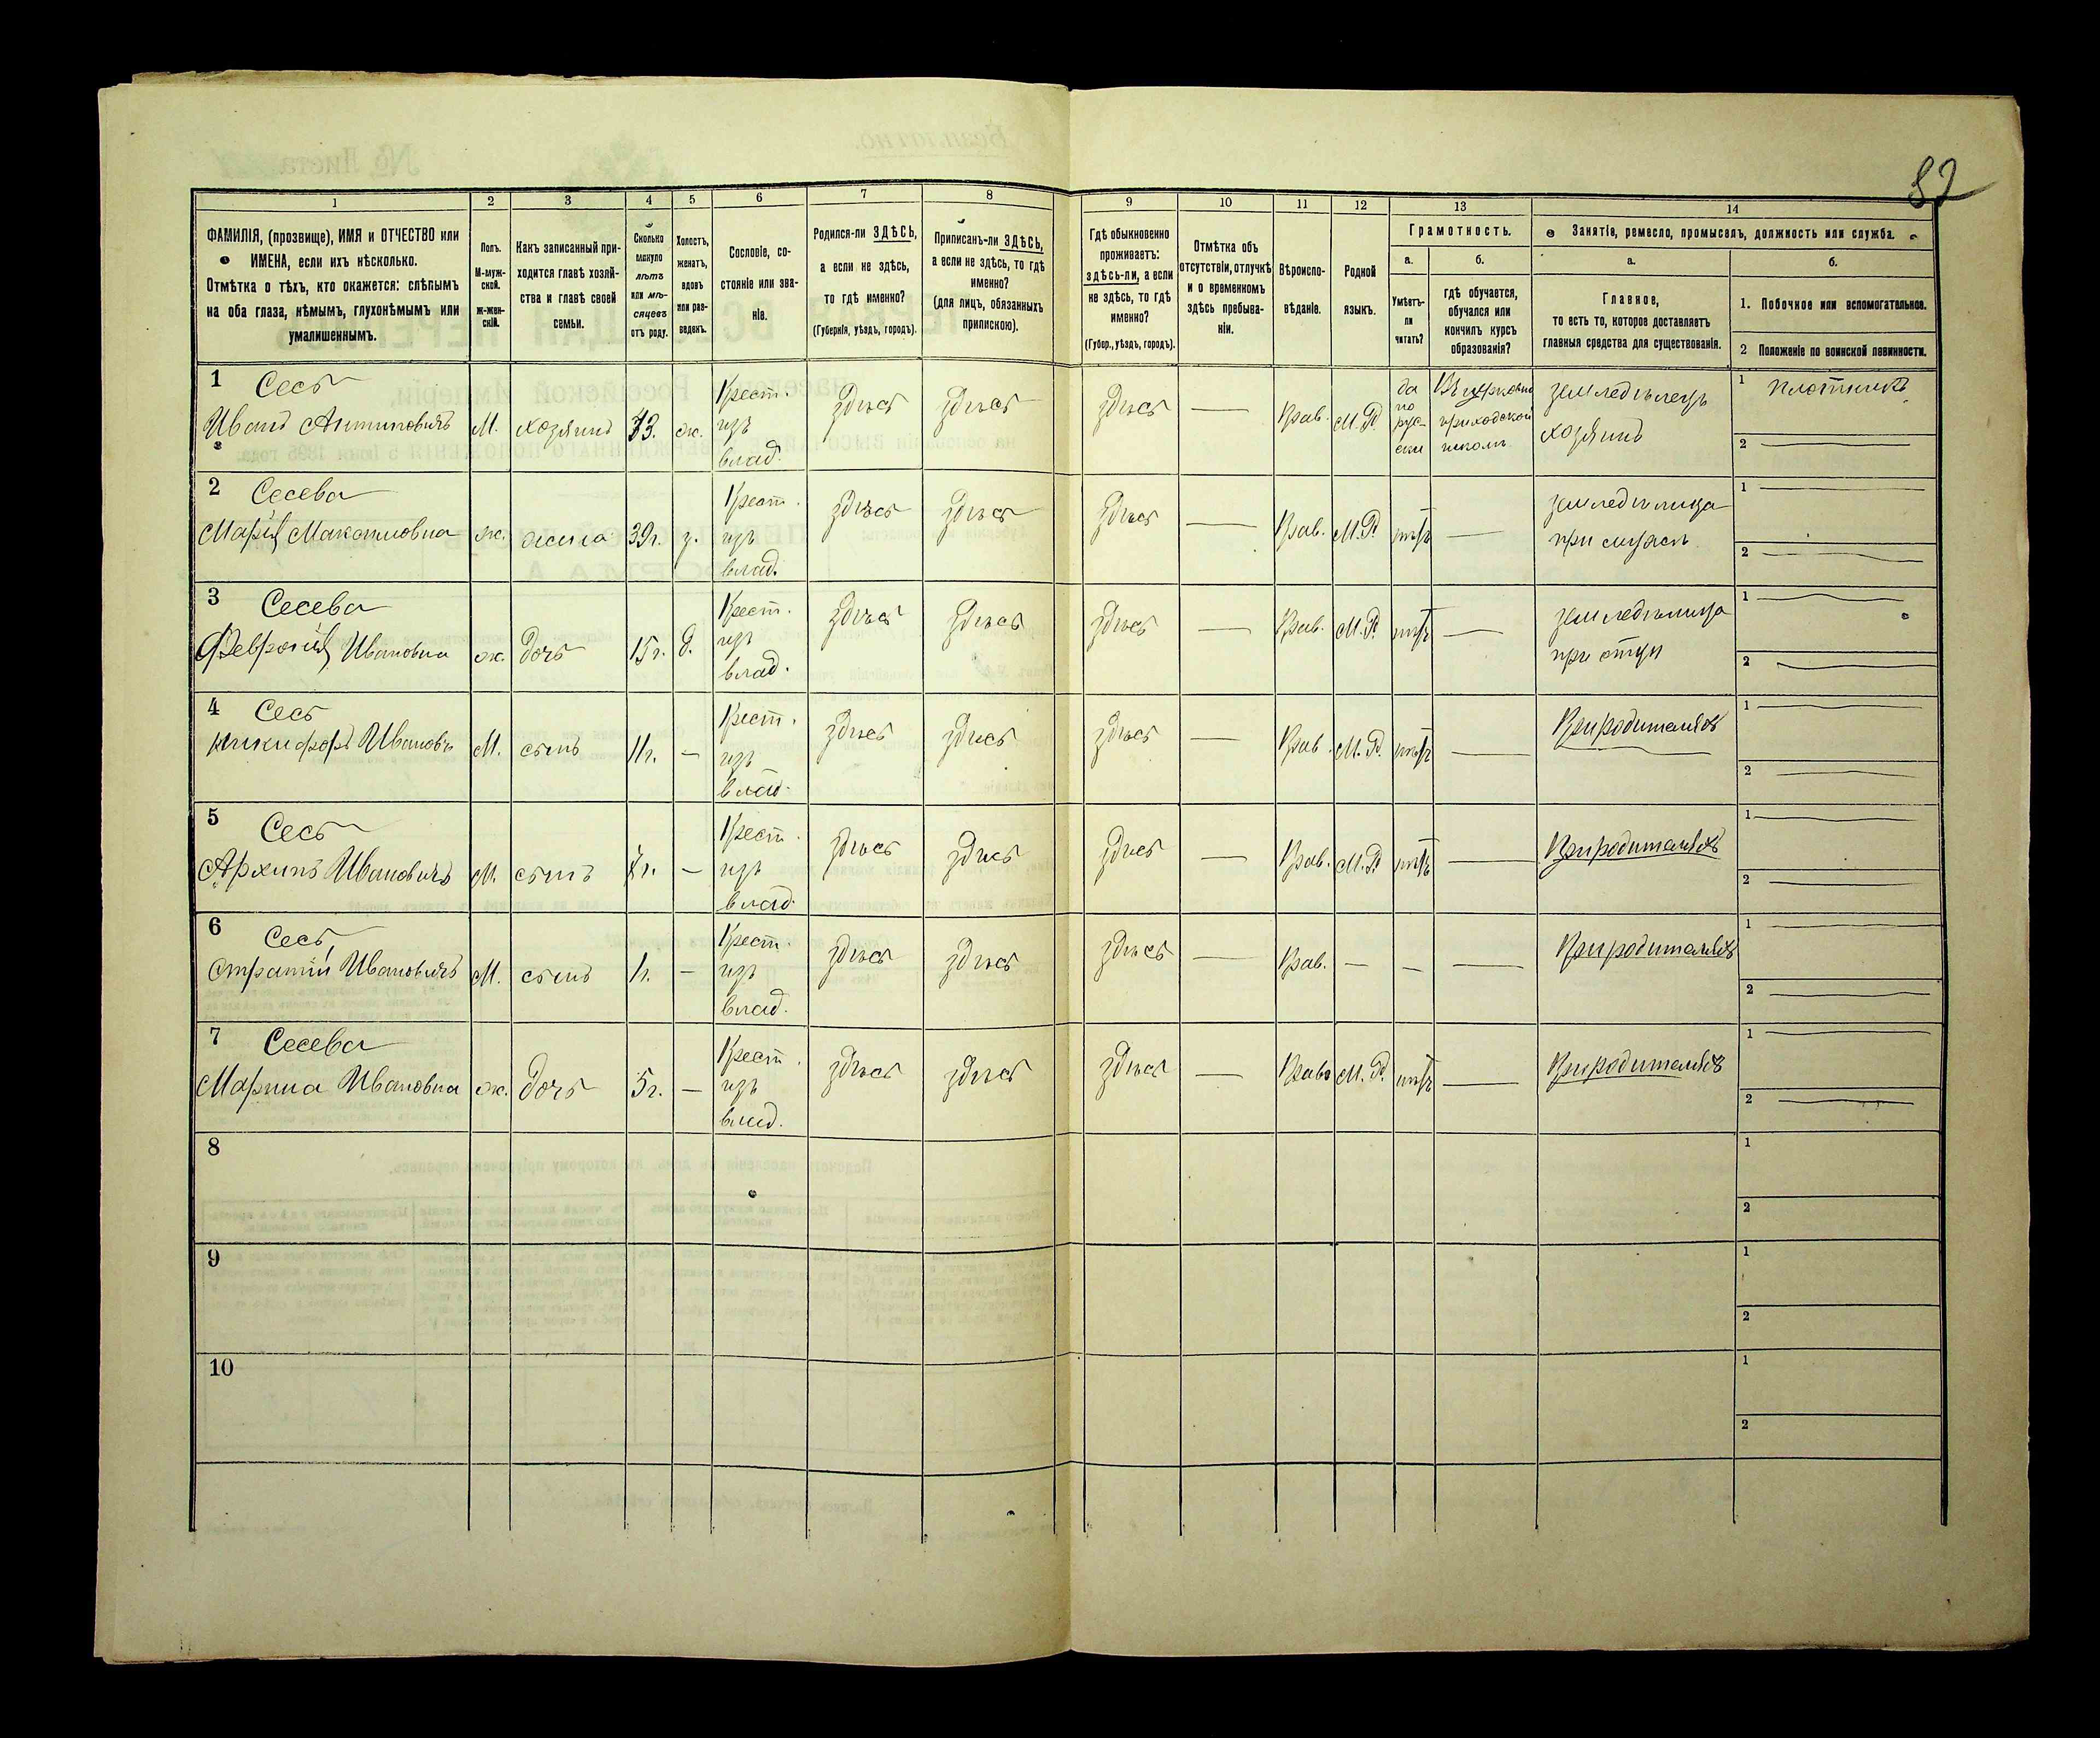 82
1 2 3 4 5 6 7 8 9 10 11 12 13 14
ФАМИЛІЯ, (прозвище), ИМЯ и ОТЧЕСТВО или
ИМЕНА, если ихъ нѣсколько.
Отмѣтка о тѣхъ, кто окажется: слѣпымъ
на оба глаза, нѣмымъ, глухонѣмымъ или
умалишеннымъ.
Полъ.
М-муж-
ской.
ж-жен-
скій.
Какъ записанный при-
ходится главѣ хозяй-
ства и главѣ своей
семьи.
Сколько
минуло
лѣтъ
или мѣ-
сяцевъ
отъ роду.
Холостъ,
женатъ,
вдовъ
или раз-
веденъ.
Сословіе, со-
стояніе или зва-
ніе.
Родился-ли ЗДѢСЬ,
а если не здѣсь,
то гдѣ именно?
(Губернія, уѣздъ, городъ).
Приписанъ-ли ЗДѢСЬ,
а если не здѣсь, то гдѣ
именно?
(для лицъ, обязанныхъ
припискою).
Гдѣ обыкновенно
проживаетъ:
здѣсь-ли, а если
не здѣсь, то гдѣ
именно?
(Губер., уѣздъ, городъ).
Отмѣтка объ
отсутствіи, отлучкѣ
и о временномъ
здѣсь пребыва-
ніи.
Вѣроиспо-
вѣданіе.
Родной
языкъ.
Грамотность.
а.
Умѣетъ-
ли
читать?
б.
гдѣ обучается,
обучался или
кончилъ курсъ
образованія?
Занятіе, ремесло, промыселъ, должность или служба.
а.
Главное,
то есть то, которое доставляетъ
главныя средства для существованія.
б.
1. Побочное или вспомогательное.
2 Положеніе по воинской повинности.
1 Сесь
Иванъ Антиповичъ М. хозяинъ 43. ж.
Крест.
изъ
влад.
здѣсь здѣсь здѣсь — Прав. М. Р.
да
по
рус-
ски
Въ церковно
приходской
школѣ
земледѣлецъ
хозяинъ
1 Плотникъ
2 —
2 Сесева
Марія Максимовна ж. жена 39 г. з.
Крест.
изъ
влад.
здѣсь здѣсь здѣсь — Прав. М. Р. нѣтъ —
земледѣлица
при мужѣ
1 —
2 —
3 Сесева
Февронія Ивановна ж. дочь 15 г. д.
Крест.
изъ
влад.
здѣсь здѣсь здѣсь — Прав. М. Р. нѣтъ —
земледѣлица
при отцѣ
1 —
2 —
4 Сесь
Никифоръ Ивановъ М. сынъ 11 г. —
Крест.
изъ
влад.
здѣсь здѣсь здѣсь — Прав. М. Р. нѣтъ —
При родителяхъ
1 —
2 —
5 Сесь
Архипъ Ивановичъ М. сынъ 7 г. —
Крест.
изъ
влад.
здѣсь здѣсь здѣсь — Прав. М. Р. нѣтъ —
При родителяхъ
1 —
2 —
6 Сесь
Ивановичъ М. сынъ 1 г. —
Крест.
изъ
влад.
здѣсь здѣсь здѣсь — Прав. — — —
При родителяхъ
1 —
2 —
7 Сесева
Марина Ивановна ж. дочь 5 г. —
Крест.
изъ
влад.
здѣсь здѣсь здѣсь — Прав. М. Р. нѣтъ —
При родителяхъ
1 —
2 —
8
1
2
9
1
2
10
1
2